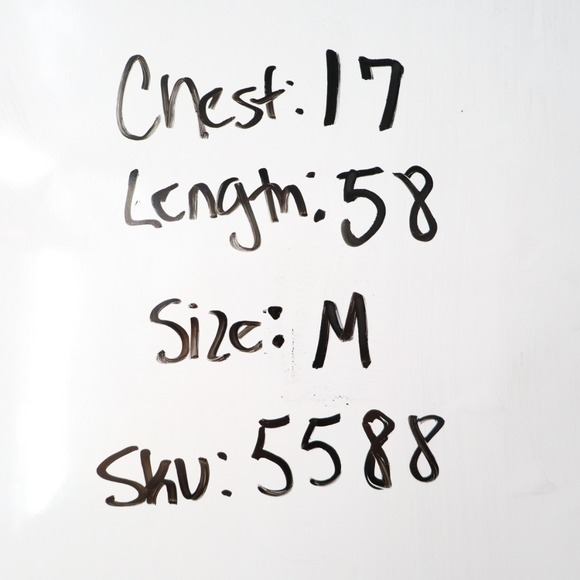 Chest: 17
Length: 58
Size: M
Sku: 5588